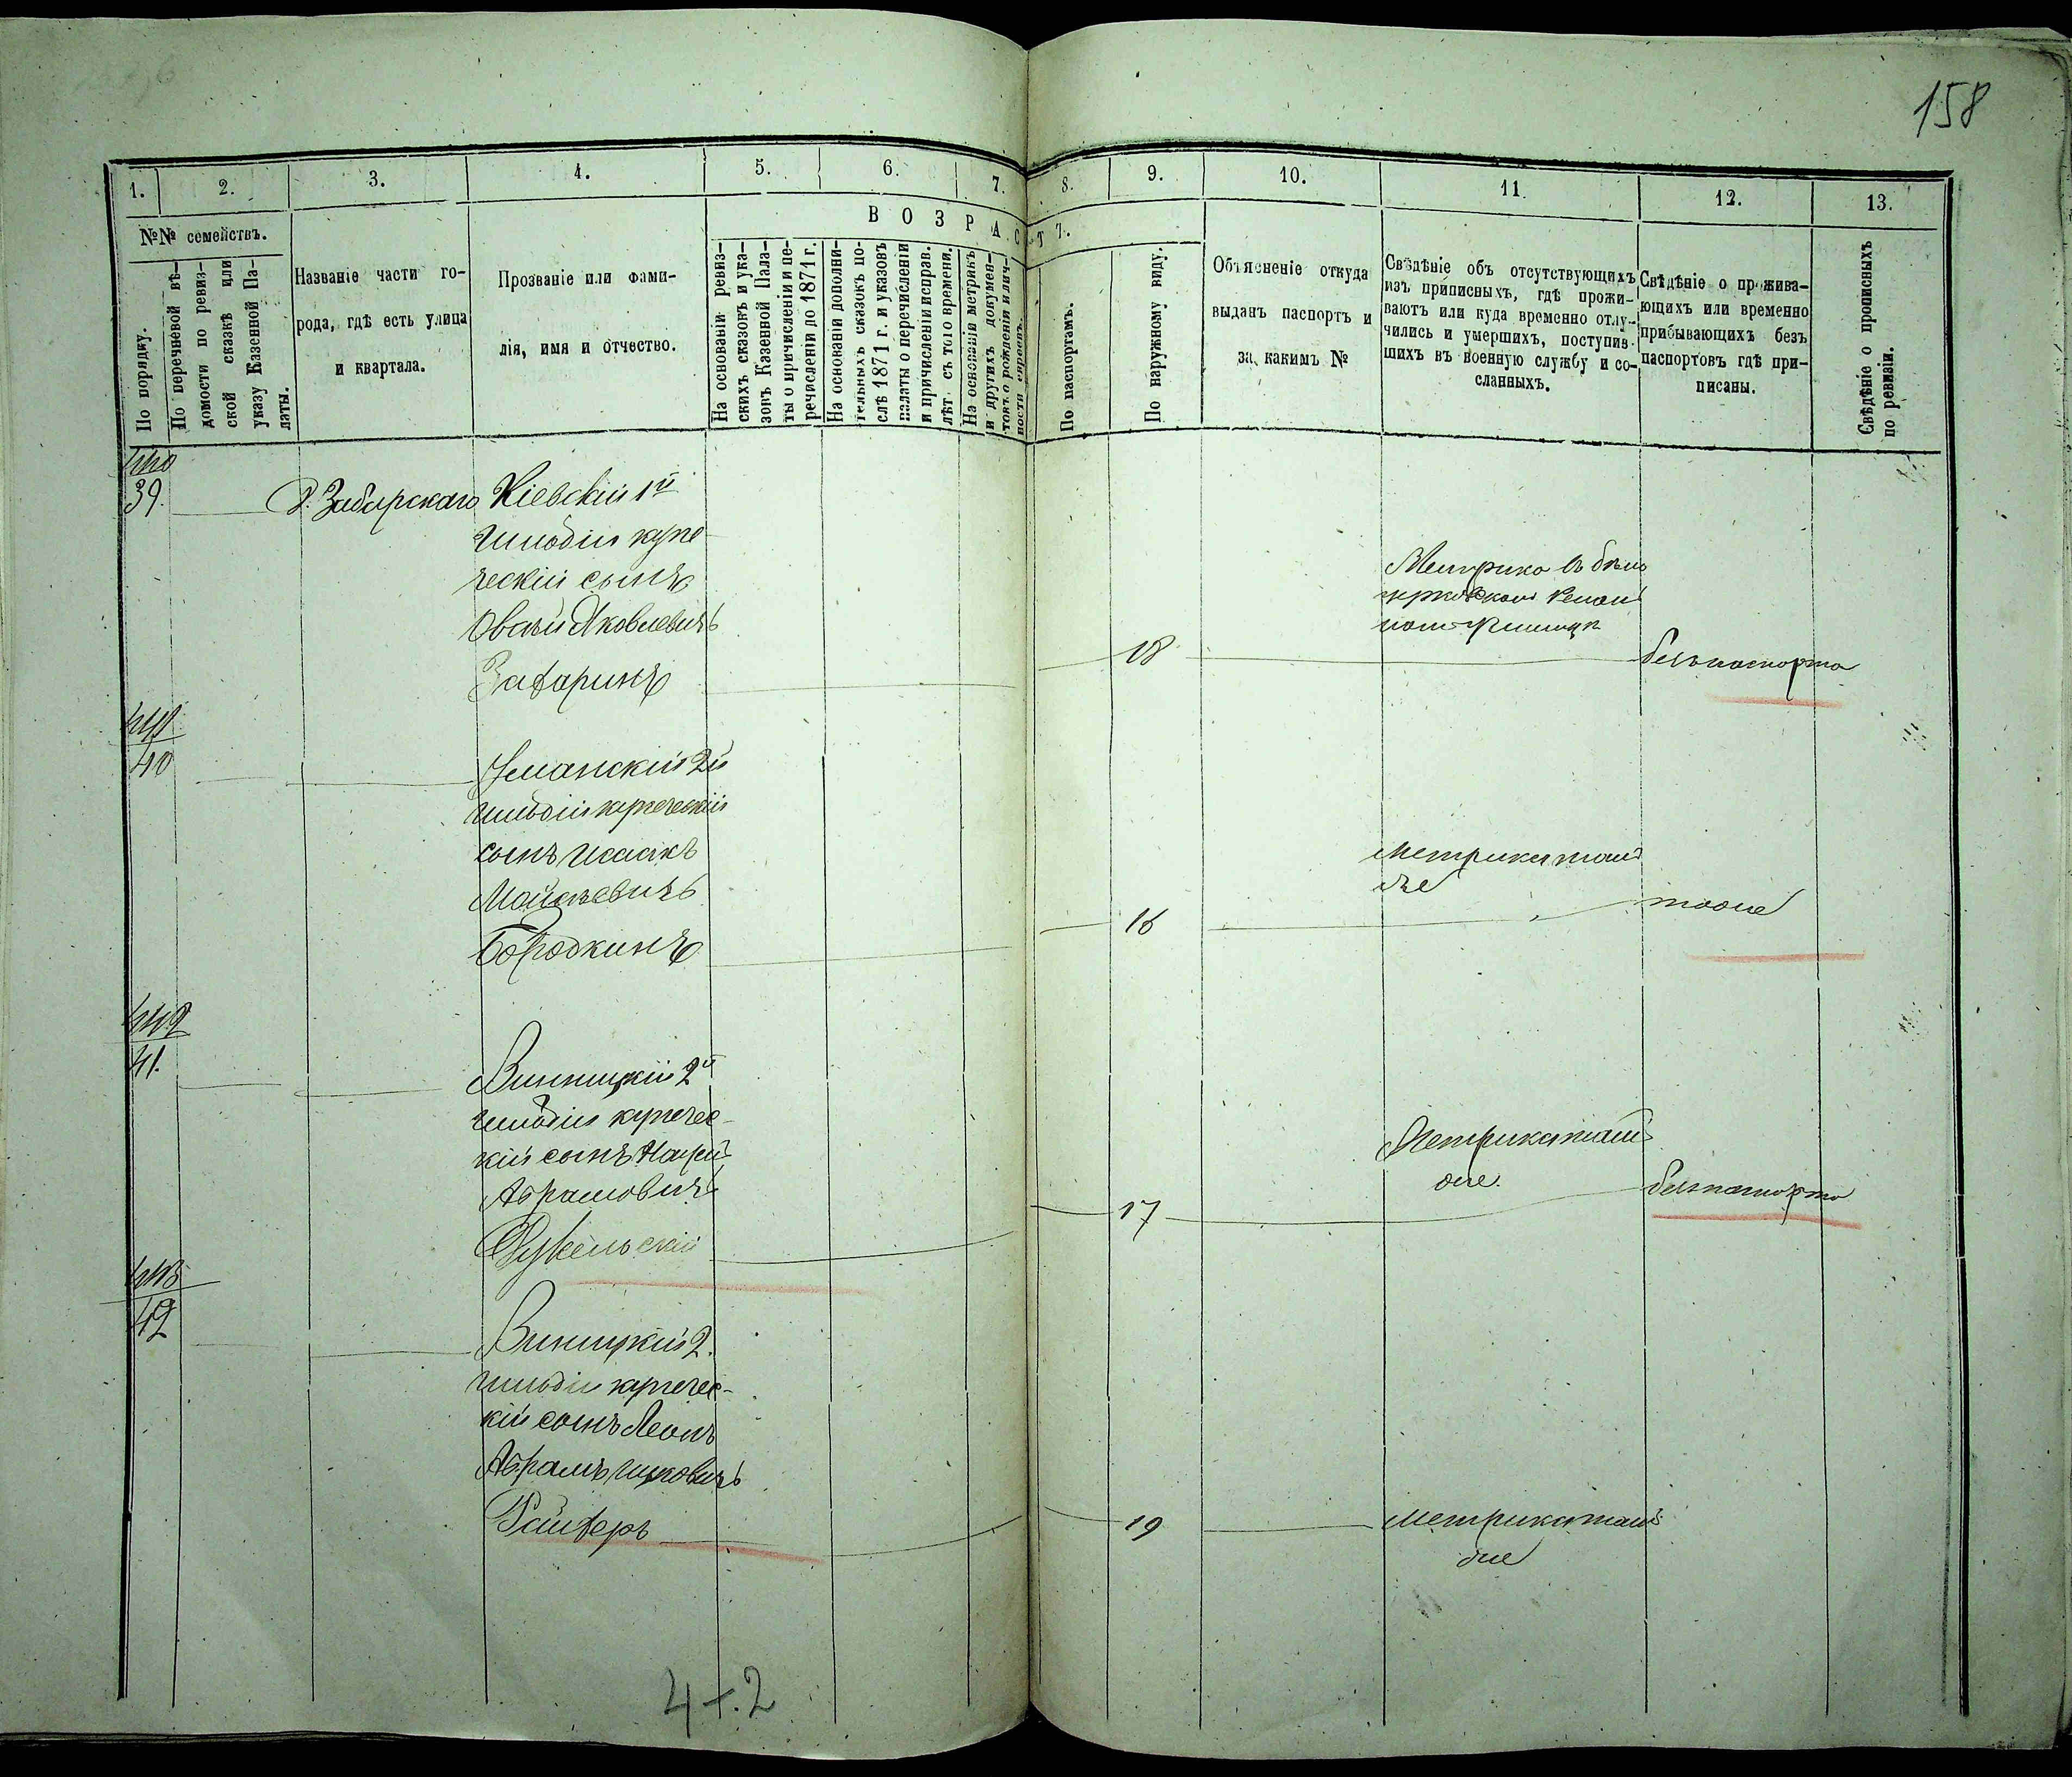 158
1. 2. 3. 4. 5. 6. 7. 8. 9. 10. 11. 12. 13.
№№ семействъ.
По порядку.
По перечневой вѣ-
домости по ревиз-
ской сказкѣ или
указу Казенной Па-
латы.
Названіе части го-
рода, гдѣ есть улица
и квартала.
Прозваніе или фами-
лія, имя и отчество.
ВОЗРАСТЪ.
На основаніи ревиз-
скихъ сказокъ и ука-
зовъ Казенной Пала-
ты о причисленіи и пе-
речисленіи до 1871 г.
На основаніи дополни-
тельныхъ сказокъ по-
слѣ 1871 г. и указовъ
палаты о перечисленіи
и причисленіи исправ.
лѣт съ того времени.
На основаніи метрикъ
и другихъ докумен-
товъ о рожденіи и лич-
ности евреевъ.
По паспортамъ.
По наружному виду.
Объясненіе откуда
выданъ паспортъ и
за какимъ №
Свѣдѣніе объ отсутствующихъ
изъ приписныхъ, гдѣ прожи-
ваютъ или куда временно отлу-
чились и умершихъ, поступив-
шихъ въ военную службу и со-
сланныхъ.
Свѣдѣніе о прожива-
ющихъ или временно
прибывающихъ безъ
паспортовъ гдѣ при-
писаны.
Свѣдѣніе о прописныхъ
по ревизіи.
440
39.
Кіевскій 1й
гильдіи купе-
ческій сынъ
Овсѣй Яковлевичъ
18
безъ паспорта
441
40
Уманскій 2й
гильдіи купеческій
сынъ Исаакъ
Мойсѣевичъ
Бородкинъ
16
Метрика тамъ
же
тоже
442
41.
Винницкій 2й
гильдіи купечес-
кій сынъ
Абрамовичъ
17
Метрика тамъ
же.
безъ паспорта
443
42
Виницкій 2.
гильдіи купечес-
кій сынъ Леонъ
Абрамъ Ицковичъ
19
Метрика тамъ
же
4+.2